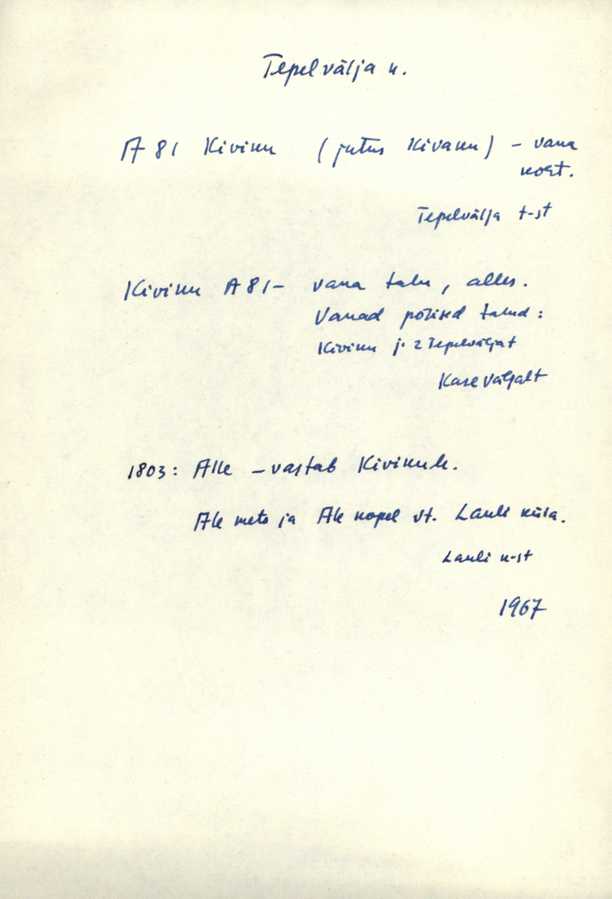 Tepelvälja k.
A 81 Kiviku (jutus Kivaku) – vana
koht.
Tepelvälja t-st
Kiviku A 81 – vana talu, alles.
Vanad põlised talud:
Kiviku j. 2 Tepelväljat
Kaseväljalt
1803: Alle – vastab Kivikule.
Ale mets ja Ale nopel vt. Lauli küla.
Lauli k-st
1967